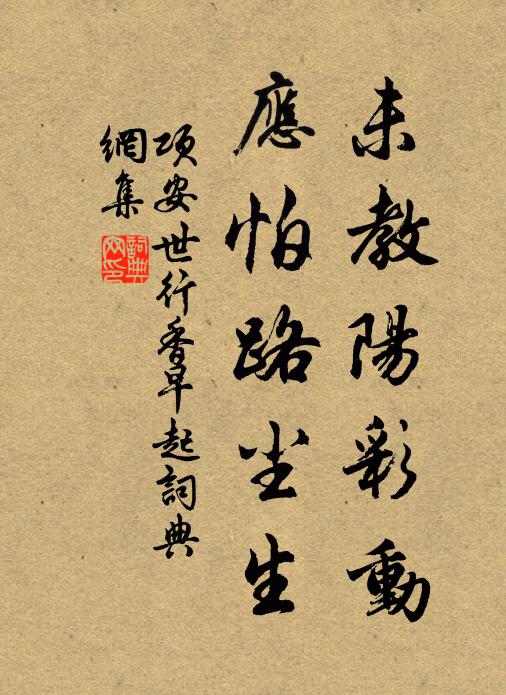 未教陽彩動
應怕路尘生
項安世行香早起詞典
網集
詞典網印